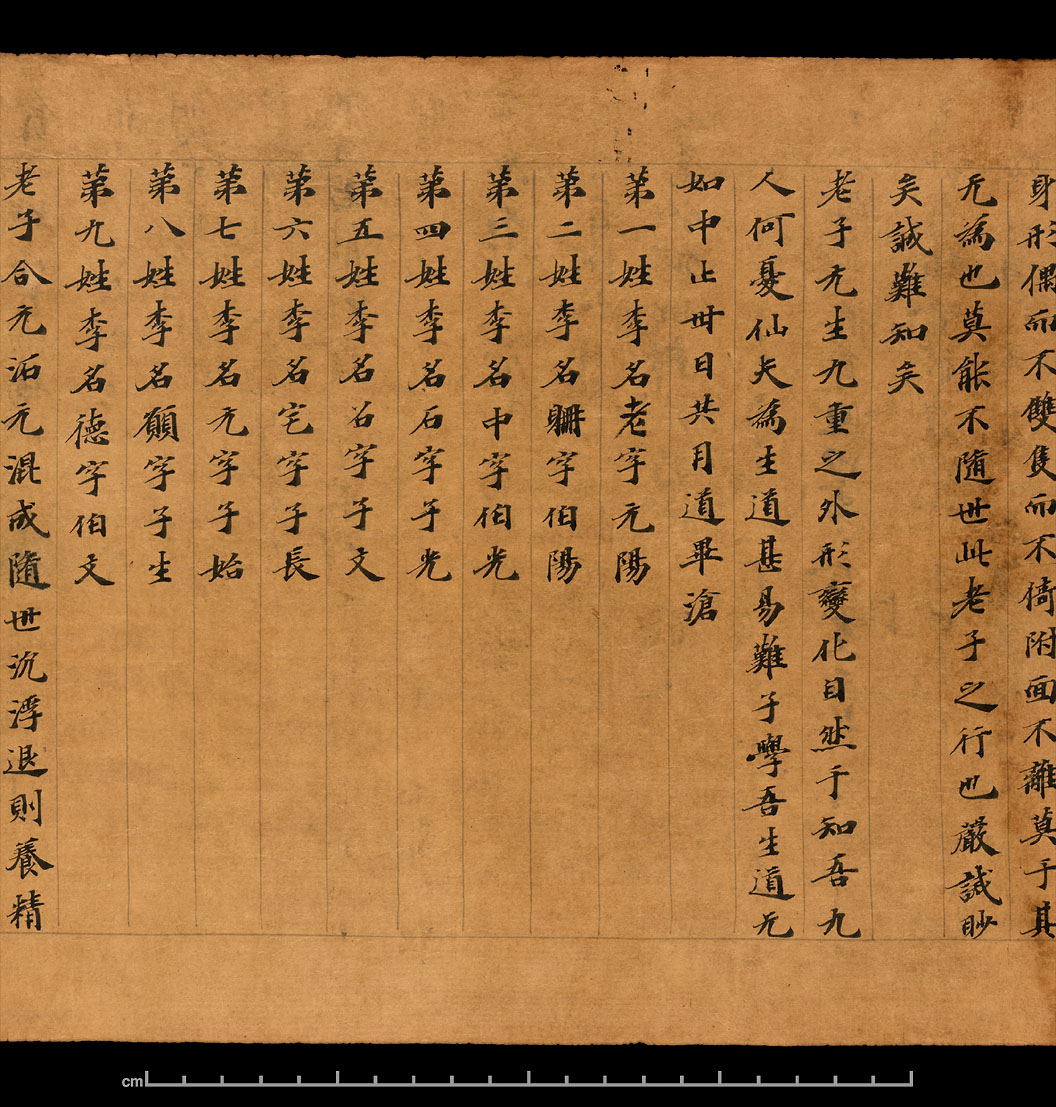 身形偶而不雙隻而不倚附面不離莫于其
无為也莫能不隨世此老子之行也嚴誡眇
矣誠難知矣
老子元生九重之外形變化自然于知吾九
人何憂仙夫為生道甚易難子學吾生道无
如中止卅日共月道畢滄
第一姓李名老字元陽
第二姓李名聃字伯陽
第三姓李名中字伯光
第四姓李名石字子光
第五姓李名石字子文
第六姓李名宅字子長
第七姓李名元字子始
第八姓李名願字子生
第九姓李名德字伯文
老子合元沰元混成隨世沉浮退則養精
cm